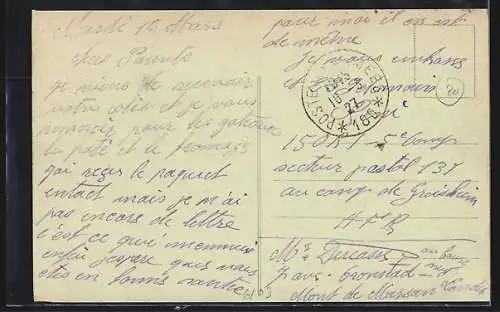 Mardi 15 Mars
chers Parents
je viens de recevoir
votre colis et je vous
remercie pour les gateaux
le paté et le fromage
j'ai reçu le paquet
entact mais je n'ai
pas encore de lettre
c'est ce que m'ennuie
enfin j'espère que vous
etes en bonne santée
pour moi il en est
de même
Je vous embrasse
POSTE AUX ARMEES
16
27
* 186 *
150 R I 5e Comp
secteur postal 137
au camp de
A F R
Mr Ducasse
Mont de Marsan Landes
20